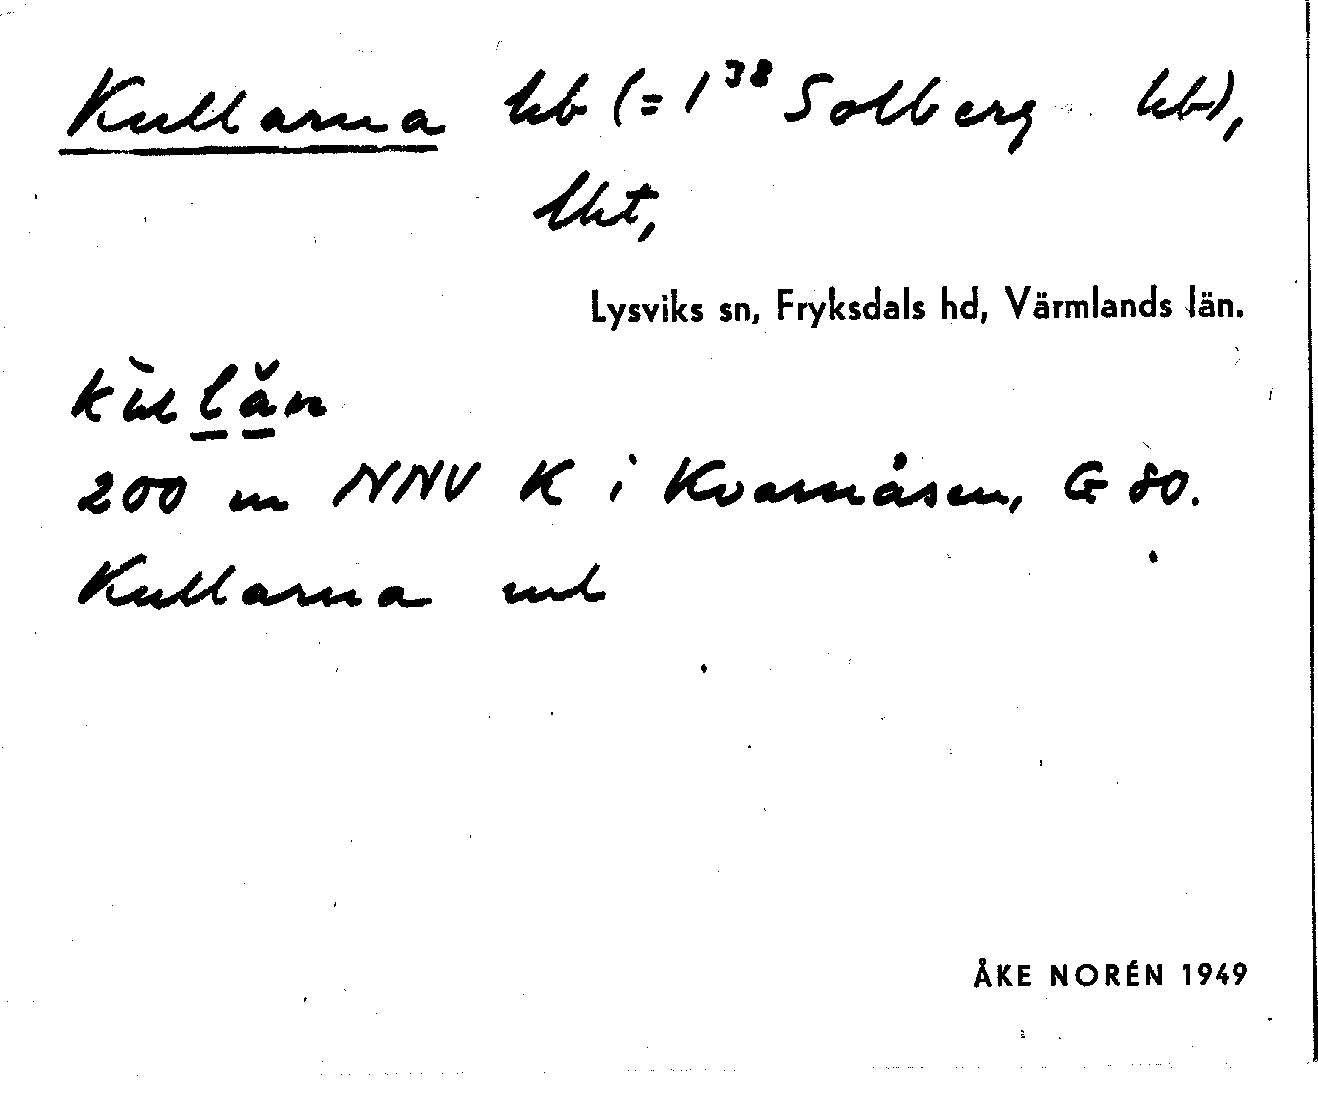 Kullarna hb (= 1³⁸ Solberg hb),
lht,
Lysviks sn, Fryksdals hd, Värmlands län.
200 m NNV K i Kvarnåsen, G 80.
Kullarna
ÅKE NORÉN 1949